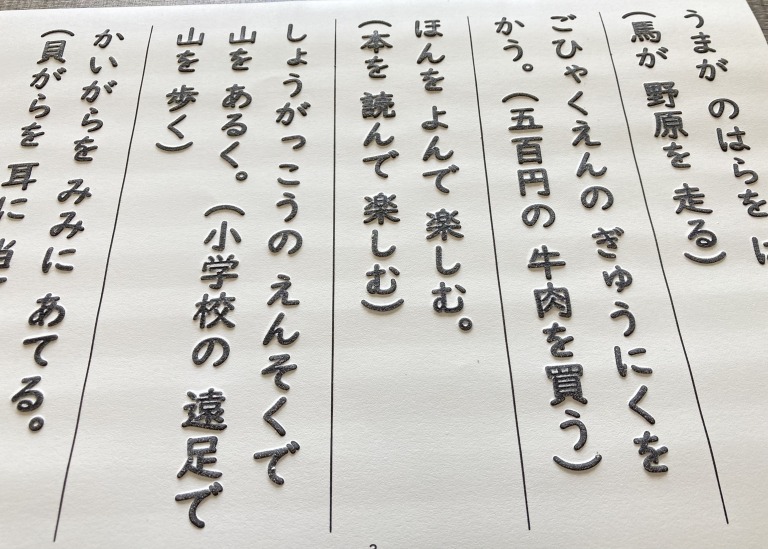 うまが のはらを は
(馬が 野原を 走る)
ごひゃくえんの ぎゅうにくを
かう。(五百円の 牛肉を買う)
ほんを よんで 楽しむ。
(本を 読んで 楽しむ)
しょうがっこうの えんそくで
山を あるく。(小学校の 遠足で
山を 歩く)
かいがらを みみに あてる。
(貝がらを 耳に 当